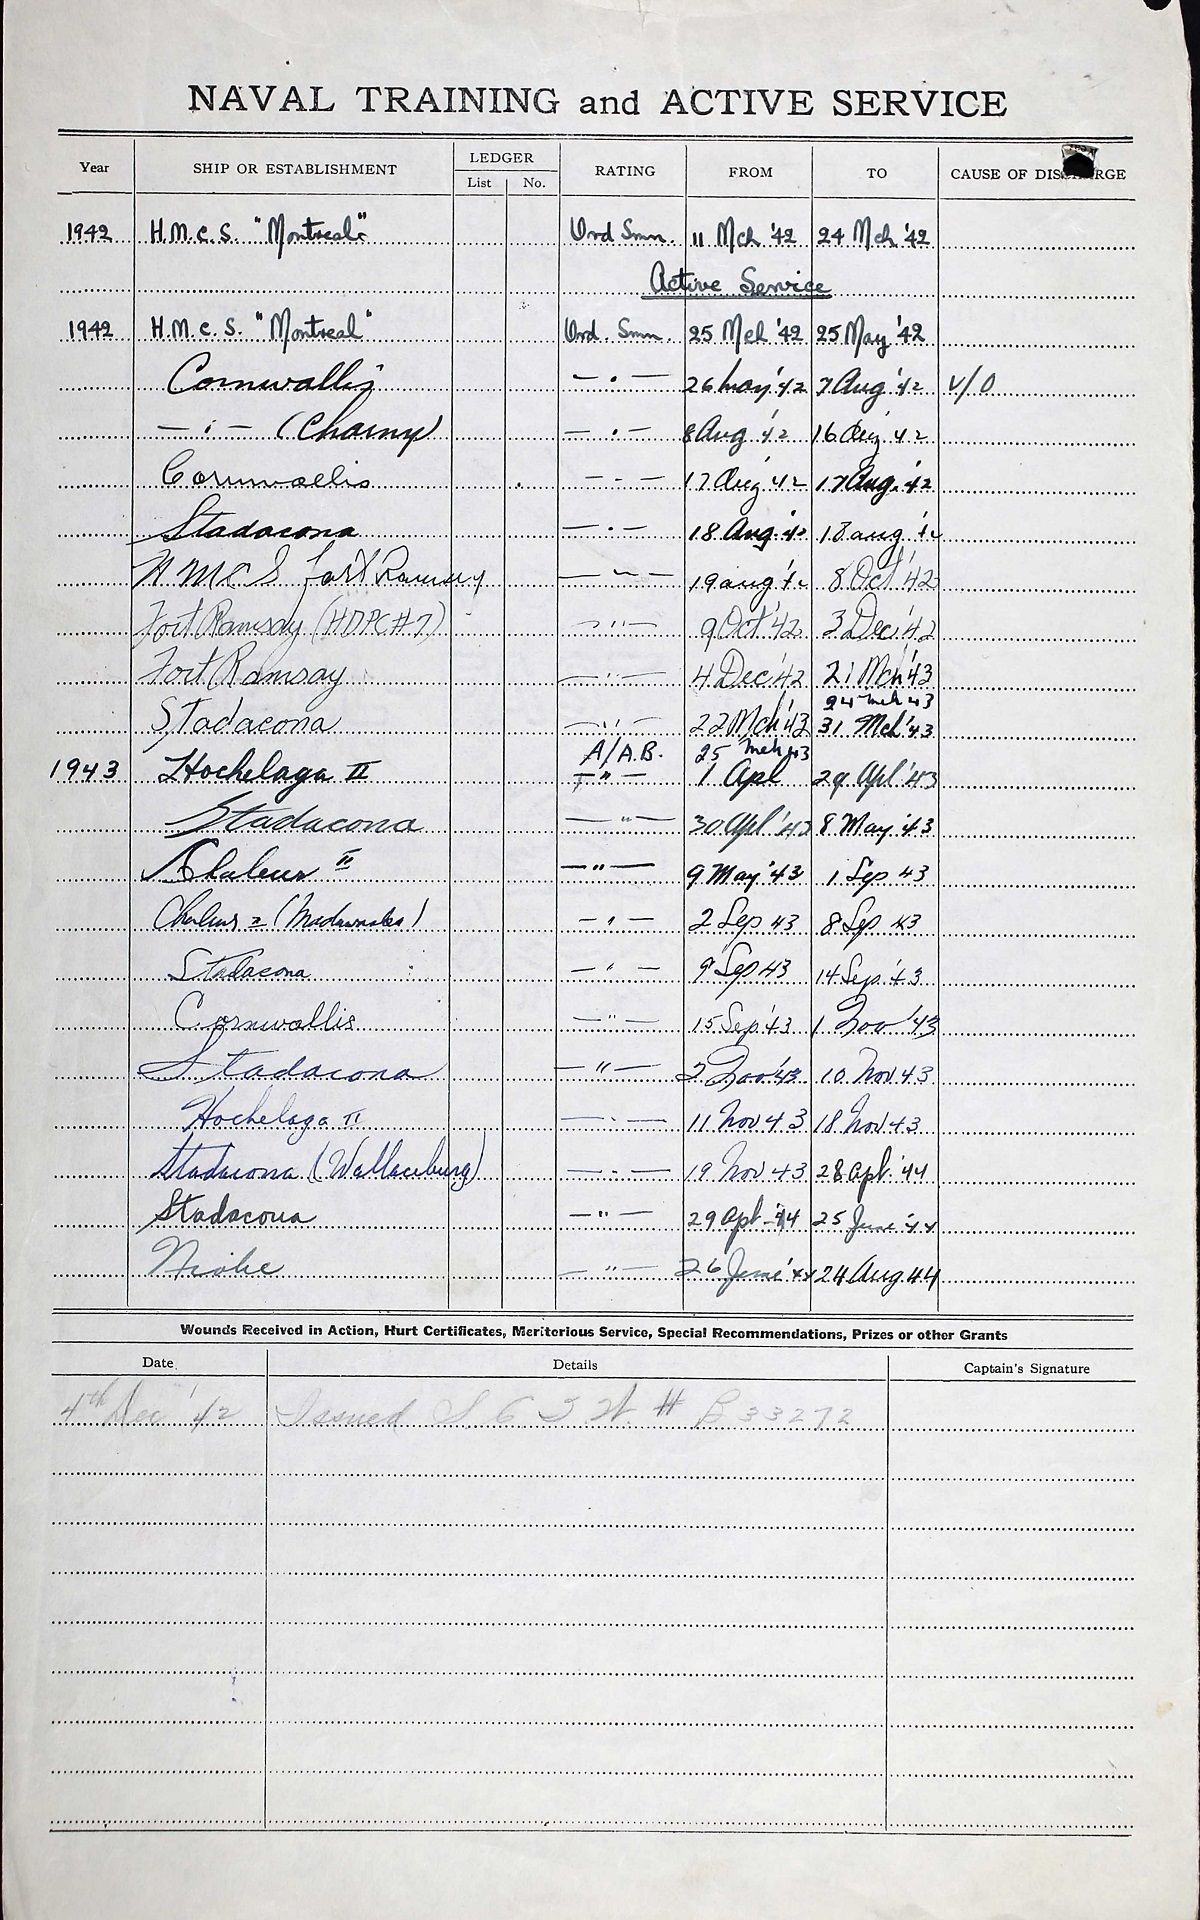 NAVAL TRAINING and ACTIVE SERVICE
Year SHIP OR ESTABLISHMENT LEDGER List No. RATING FROM TO CAUSE OF DISCHARGE
1942 H.M.C.S. "Montreal" Ord Smn. 11 Mch '42 24 Mch '42
Active Service
1942 H.M.C.S. "Montreal" Ord. Smn. 25 Mch '42 25 May '42
Cornwallis — . — 26 May '42 7 Aug '42 V/O
— . — (Charny) — . — 8 Aug '42 16 Aug '42
Cornwallis — . — 17 Aug '42 17 Aug. '42
Stadacona — . — 18 Aug. '42 18 aug '42
H M C S Fort Ramsay — " — 19 aug '42 8 Oct '42
Fort Ramsay (HDPC#7) — " — 9 Oct '42 3 Dec '42
Fort Ramsay — " — 4 Dec '42 21 Mch '43
24 Mch 43
Stadacona — " — 22 Mch '43 31 Mch '43
A/A.B. 25 Mch 43
1943 Hochelaga II — " — 1 Apl 29 Apl '43
Stadacona — " — 30 Apl '43 8 May '43
Chaleur II — " — 9 May '43 1 Sep 43
Chaleur 2 (Madawaska) — " — 2 Sep 43 8 Sep 43
Stadacona — " — 9 Sep 43 14 Sep '43
Cornwallis — " — 15 Sep '43 1 Nov '43
Stadacona — " — 2 Nov '43 10 Nov 43
Hochelaga II — . — 11 Nov 43 18 Nov 43
Stadacona (Wallaceburg) — . — 19 Nov 43 28 Apl. '44
Stadacona — " — 29 Apl - 44 25 June '44
Niobe — " — 26 June '44 24 Aug 44
Wounds Received in Action, Hurt Certificates, Meritorious Service, Special Recommendations, Prizes or other Grants
Date Details Captain's Signature
4th Dec '42 Issued # B 33272